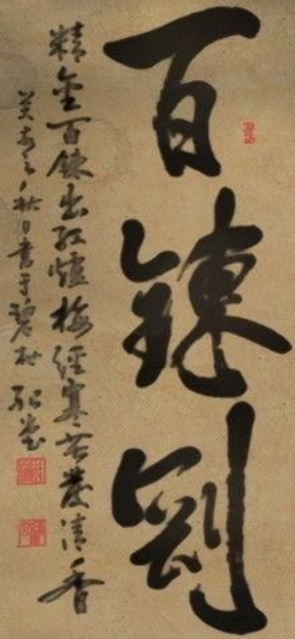 百鍊剛
精金百鍊出紅爐梅經寒苦發清香
癸未之秋日書于碧村